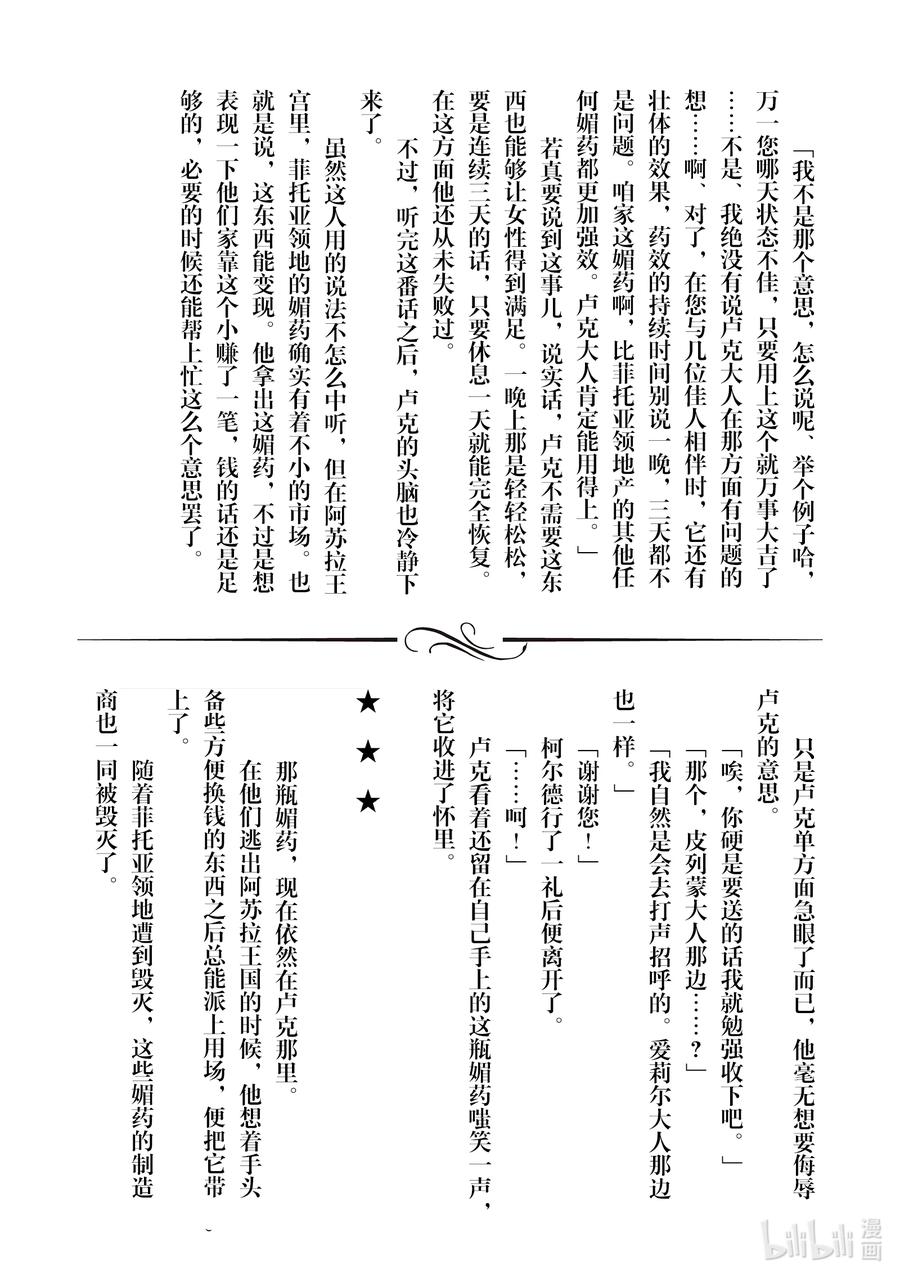 「我不是那个意思，怎么说呢、举个例子哈，
万一您哪天状态不佳，只要用上这个就万事大吉了
……不是、我绝没有说卢克大人在那方面有问题的
想……啊、对了，在您与几位佳人相伴时，它还有
壮体的效果，药效的持续时间别说一晚，三天都不
是问题。咱家这媚药啊，比菲托亚领地产的其他任
何媚药都更加强效。卢克大人肯定能用得上。」
若真要说到这事儿，说实话，卢克不需要这东
西也能够让女性得到满足。一晚上那是轻轻松松，
要是连续三天的话，只要休息一天就能完全恢复。
在这方面他还从未失败过。
不过，听完这番话之后，卢克的头脑也冷静下
来了。
虽然这人用的说法不怎么中听，但在阿苏拉王
宫里，菲托亚领地的媚药确实有着不小的市场。也
就是说，这东西能变现。他拿出这媚药，不过是想
表现一下他们家靠这个小赚了一笔，钱的话还是足
够的，必要的时候还能帮上忙这么个意思罢了。
只是卢克单方面急眼了而已，他毫无想要侮辱
卢克的意思。
「唉，你硬是要送的话我就勉强收下吧。」
「那个，皮列蒙大人那边……？」
「我自然是会去打声招呼的。爱莉尔大人那边
也一样。」
「谢谢您！」
柯尔德行了一礼后便离开了。
「……呵！」
卢克看着还留在自己手上的这瓶媚药嗤笑一声，
将它收进了怀里。
★ ★ ★
那瓶媚药，现在依然在卢克那里。
在他们逃出阿苏拉王国的时候，他想着手头
备些方便换钱的东西之后总能派上用场，便把它带
上了。
随着菲托亚领地遭到毁灭，这些媚药的制造
商也一同被毁灭了。
bilibili 漫画